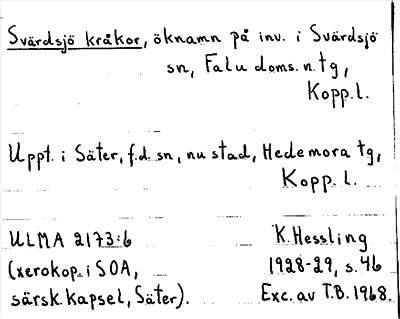 Svärdsjö kråkor, öknamn på inv. i Svärdsjö
sn, Falu doms. n. tg,
Kopp. l.
Uppt. i Säter, f.d. sn, nu stad, Hedemora tg,
Kopp. l.
ULMA 2173:6 K. Hessling
(xerokop. i SOA, 1928-29, s. 46
särsk. kapsel, Säter). Exc. av T.B. 1968.